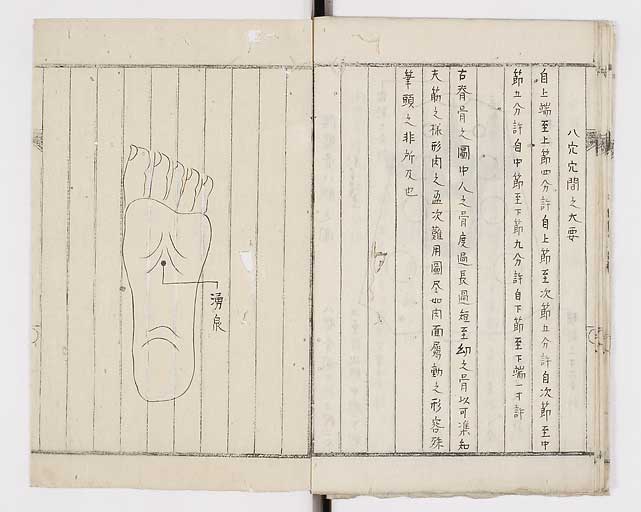 八穴穴間之大要
自上端至上節四分許自上節至次節五分許自次節至中
節五分許自中節至下節九分許自下節至下端一寸許
右脊骨之圖中人之骨度過長過短至幼之骨以可準知
夫筋之 形肉之 次難用圖尽如肉面 動之形容殊
筆頭之非所及也
湧泉